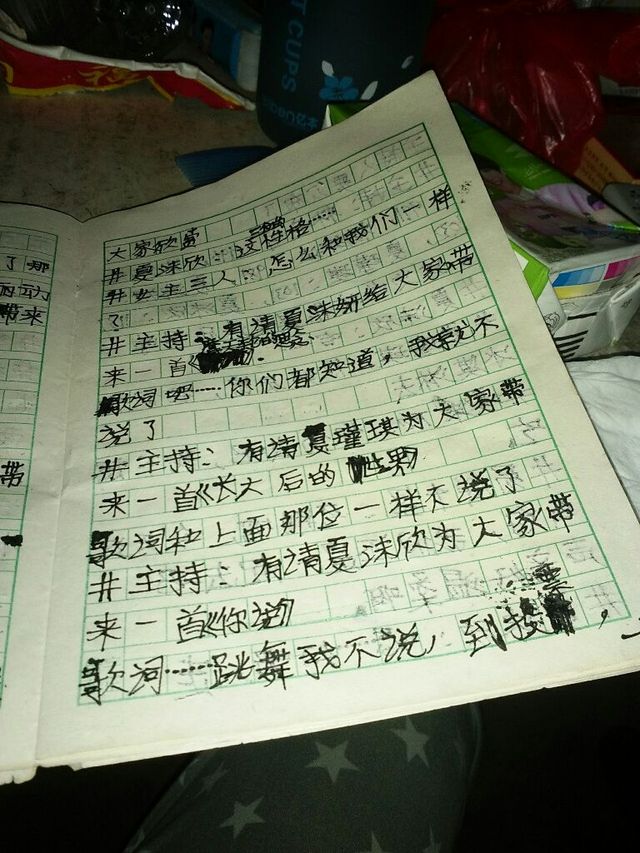 CUPS
了那
动
带来
带
大家欣赏
井夏沫欣:这性格……
井女主三人:怎么和我们一样
了
井主持:有请夏沫妍给大家带
来一首
歌词吧……你们都知道,我就不
说了
井主持:有请夏瑾琪为大家带
来一首《长大后的世界
歌词和上面那位一样不说了
井主持:有请夏沫欣为大家带
来一首《你说》
歌词……跳舞我不说,到投票,